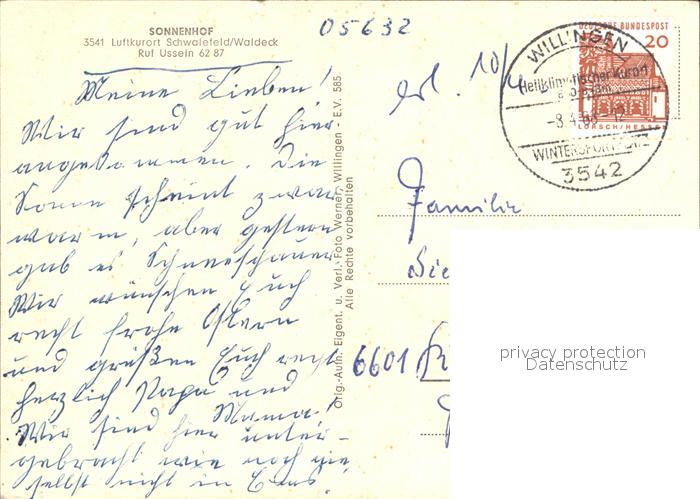 SONNENHOF
3541 Luftkurort Schwalefeld/Waldeck
Ruf Ussein 62 87
05632
Meine Lieben!
Wir sind gut hier
angekommen. Die
Sonne scheint zwar
warm, aber gestern
gab es Schneeschauer
Wir wünschen Euch
recht frohe Ostern
und grüßen Euch recht
herzlich Papa und
Mama!
Wir sind hier unter-
gebracht wie noch nie,
selbst nicht in
Orig.-Aufn. Eigent. u. Verl. Foto Werner, Willingen - E.V. 585.
Alle Rechte vorbehalten
erl. 10/4
DEUTSCHE BUNDESPOST
20
LORSCH/HESSEN
WILLINGEN
Heilklimatischer Kurort
-8.4.68-12
WINTERSPORTPLATZ
3542
Familie
6601
privacy protection
Datenschutz